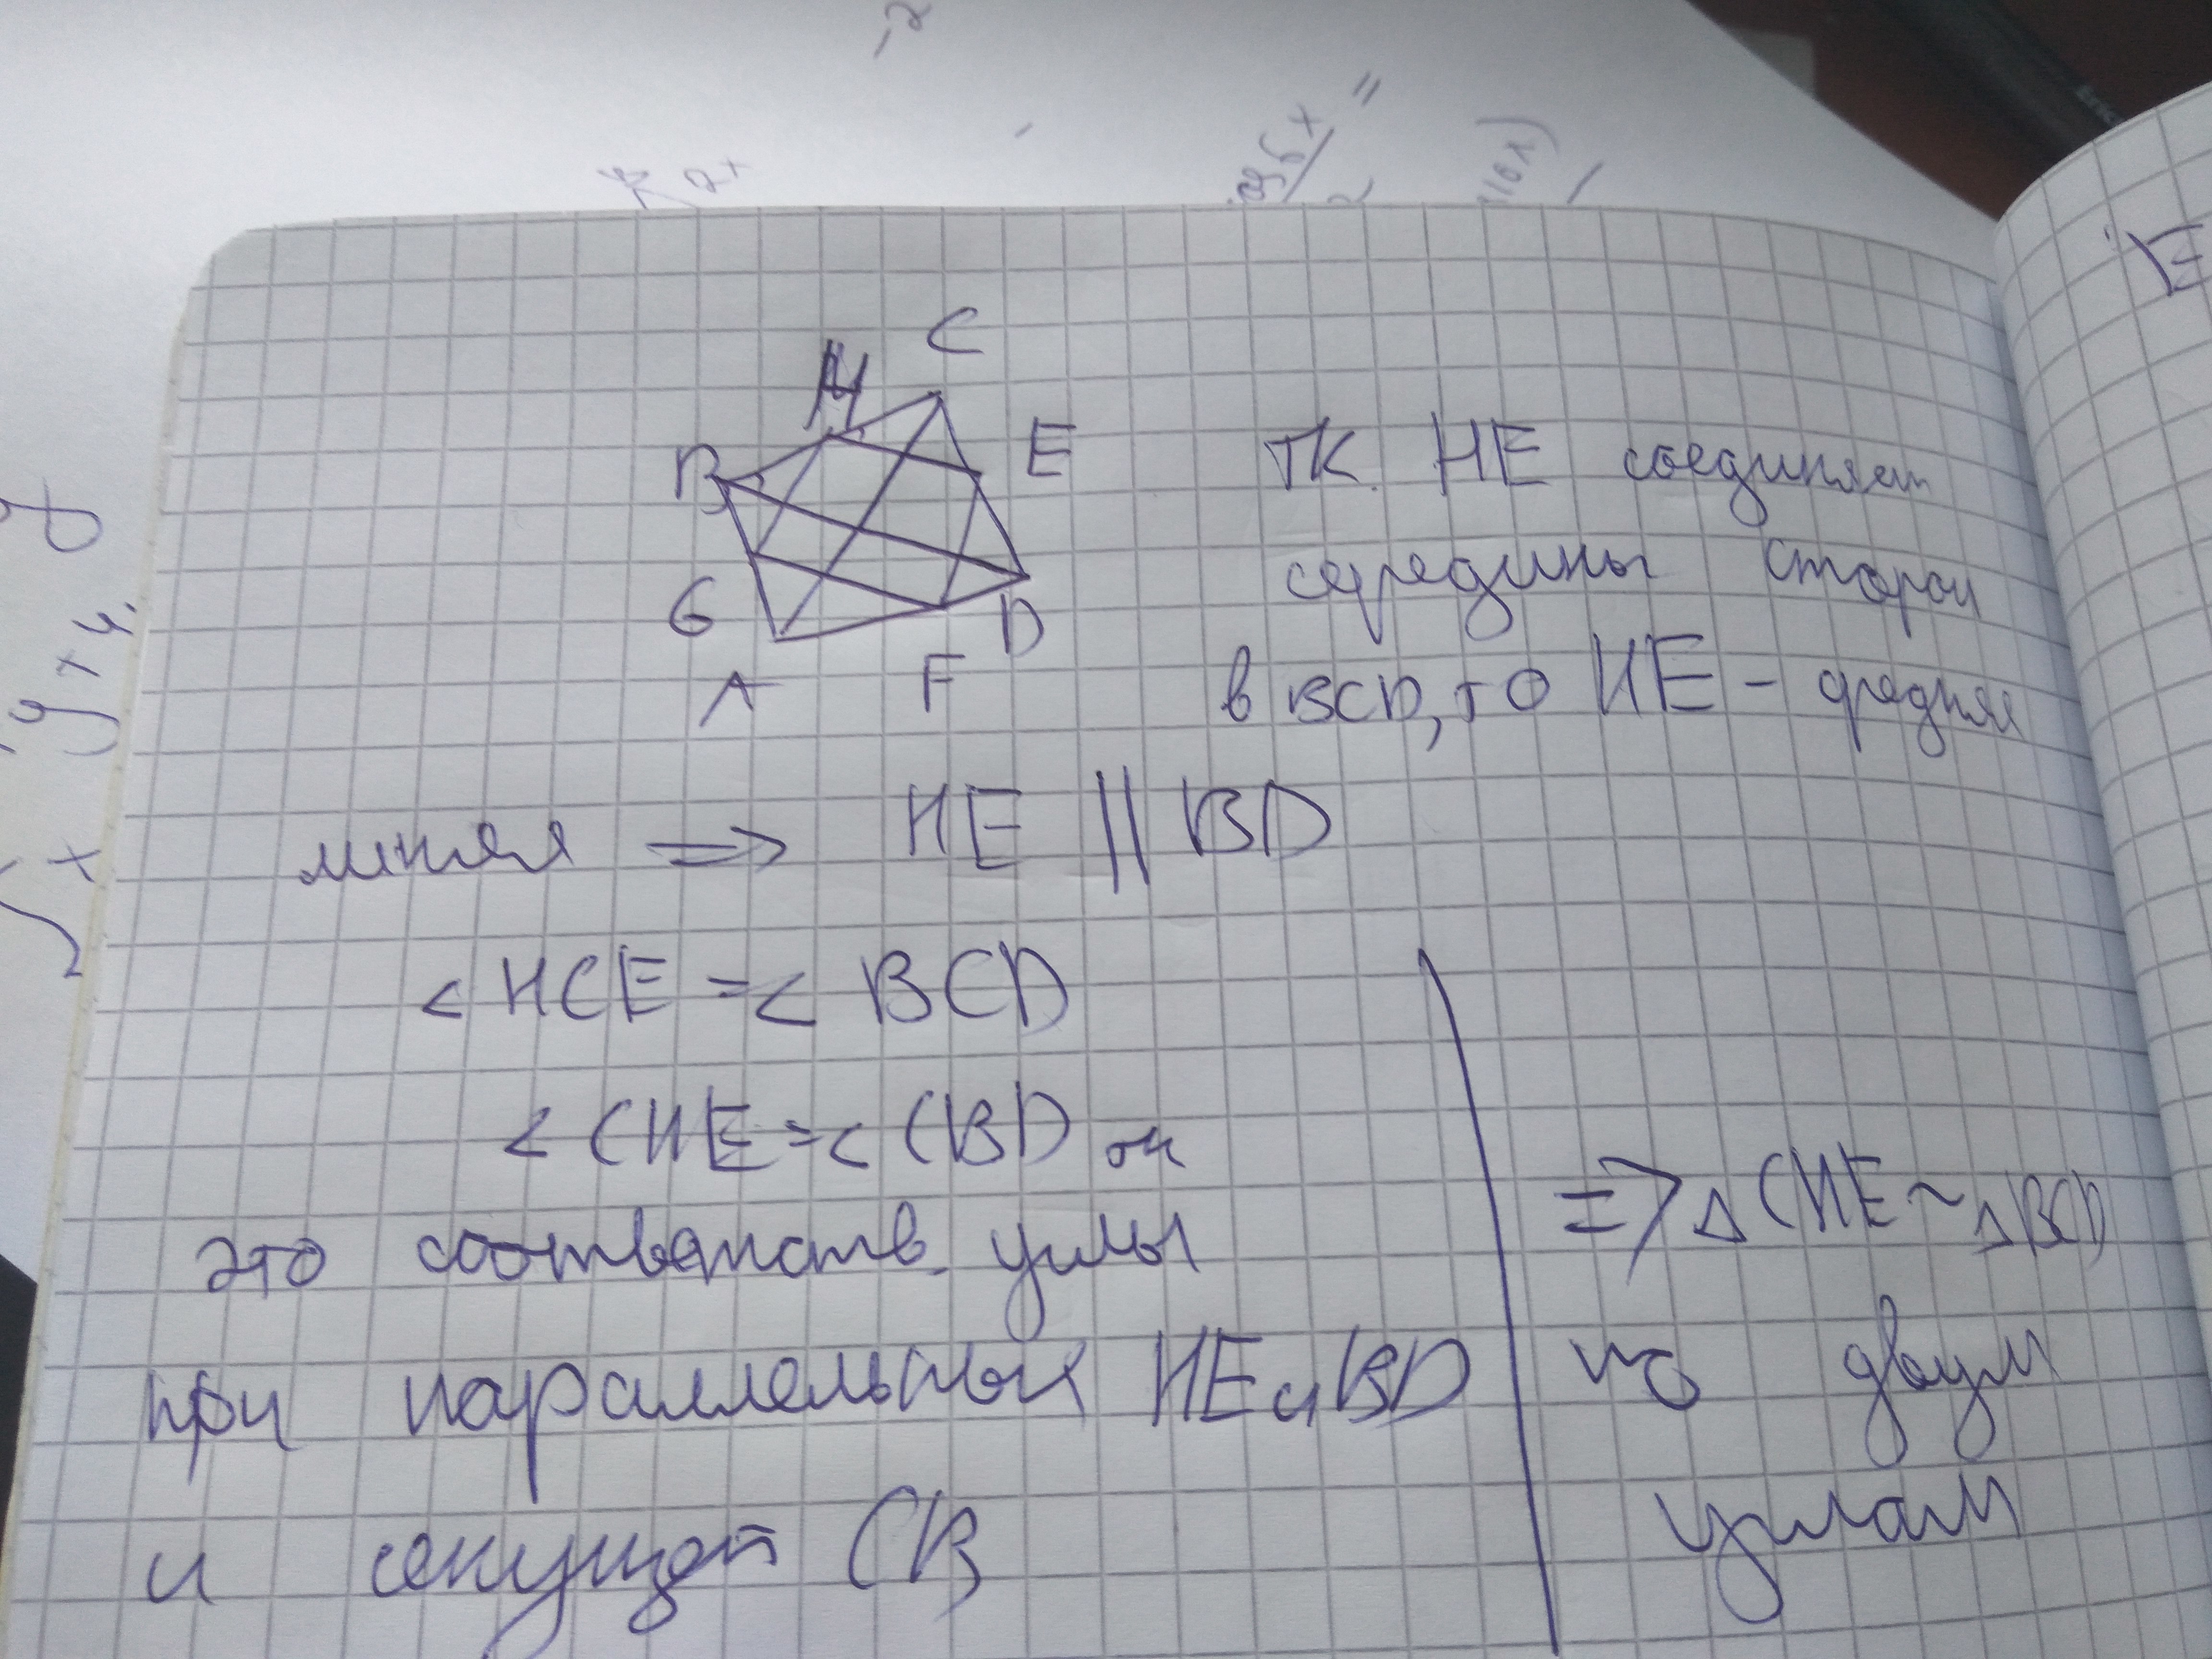 C
H
B
E
G
D
A
F
тк. HE соединяет
середины сторон
в BCD, то HE - средняя
линия => HE || BD
< HCE = < BCD
< CHE = < CBD тк
это соответств. углы
при параллельных HE и BD
и секущей CB
=> △ CHE ~ △ BCD
по двум
углам